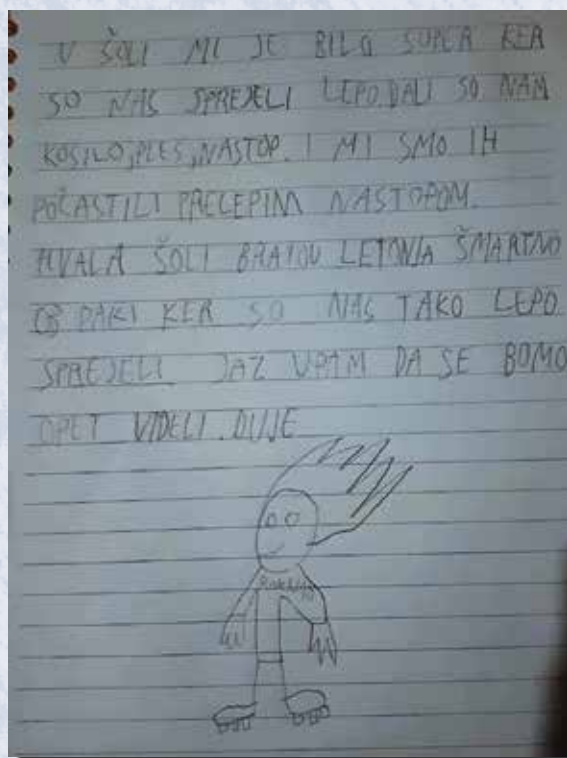 V ŠOLI MI JE BILO SUPER KER
SO NAS SPREJELI LEPO. DALI SO NAM
KOSILO, PLES, NASTOP. I MI SMO IH
POČASTILI PRELEPIM NASTOPOM.
HVALA ŠOLI BRATOV LETONJA ŠMARTNO
OB PAKI KER SO NAS TAKO LEPO
SPREJELI JAZ UPAM DA SE BOMO
OPET VIDELI. DUJE